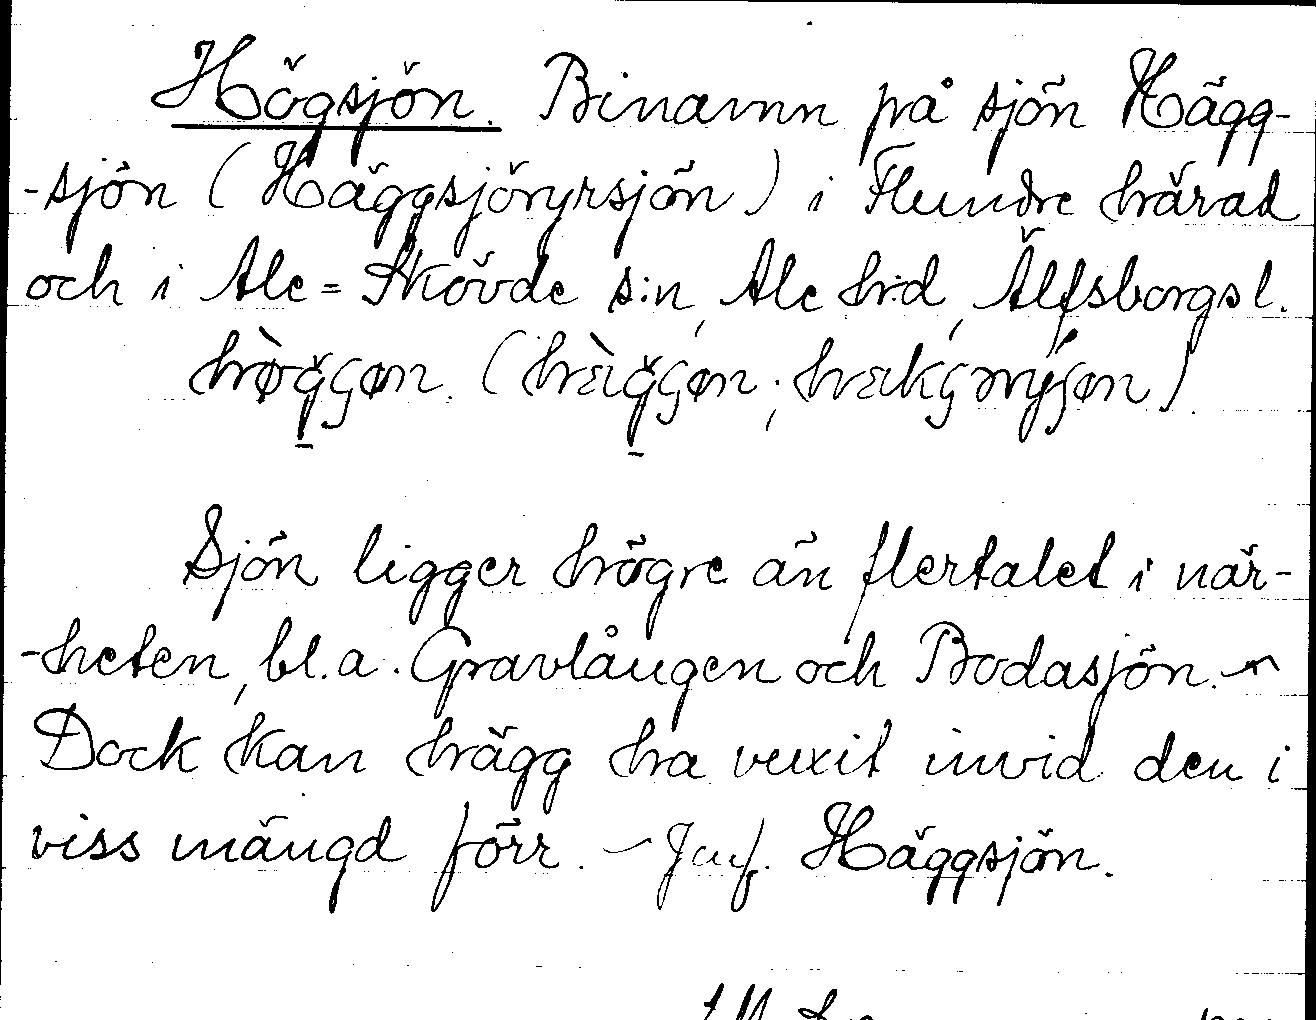 Högsjön. Binamn på sjön Hägg-
-sjön (Häggsjöryrsjön) i Flundre härad
och i Ale=Skövde s:n, Ale h:d, Älfsborgs l.
Sjön ligger högre än flertalet i när-
-heten, bl.a. Gravlången och Bodasjön. –
Dock kan hägg ha vuxit invid den i
viss mängd förr. – Jmf. Häggsjön.